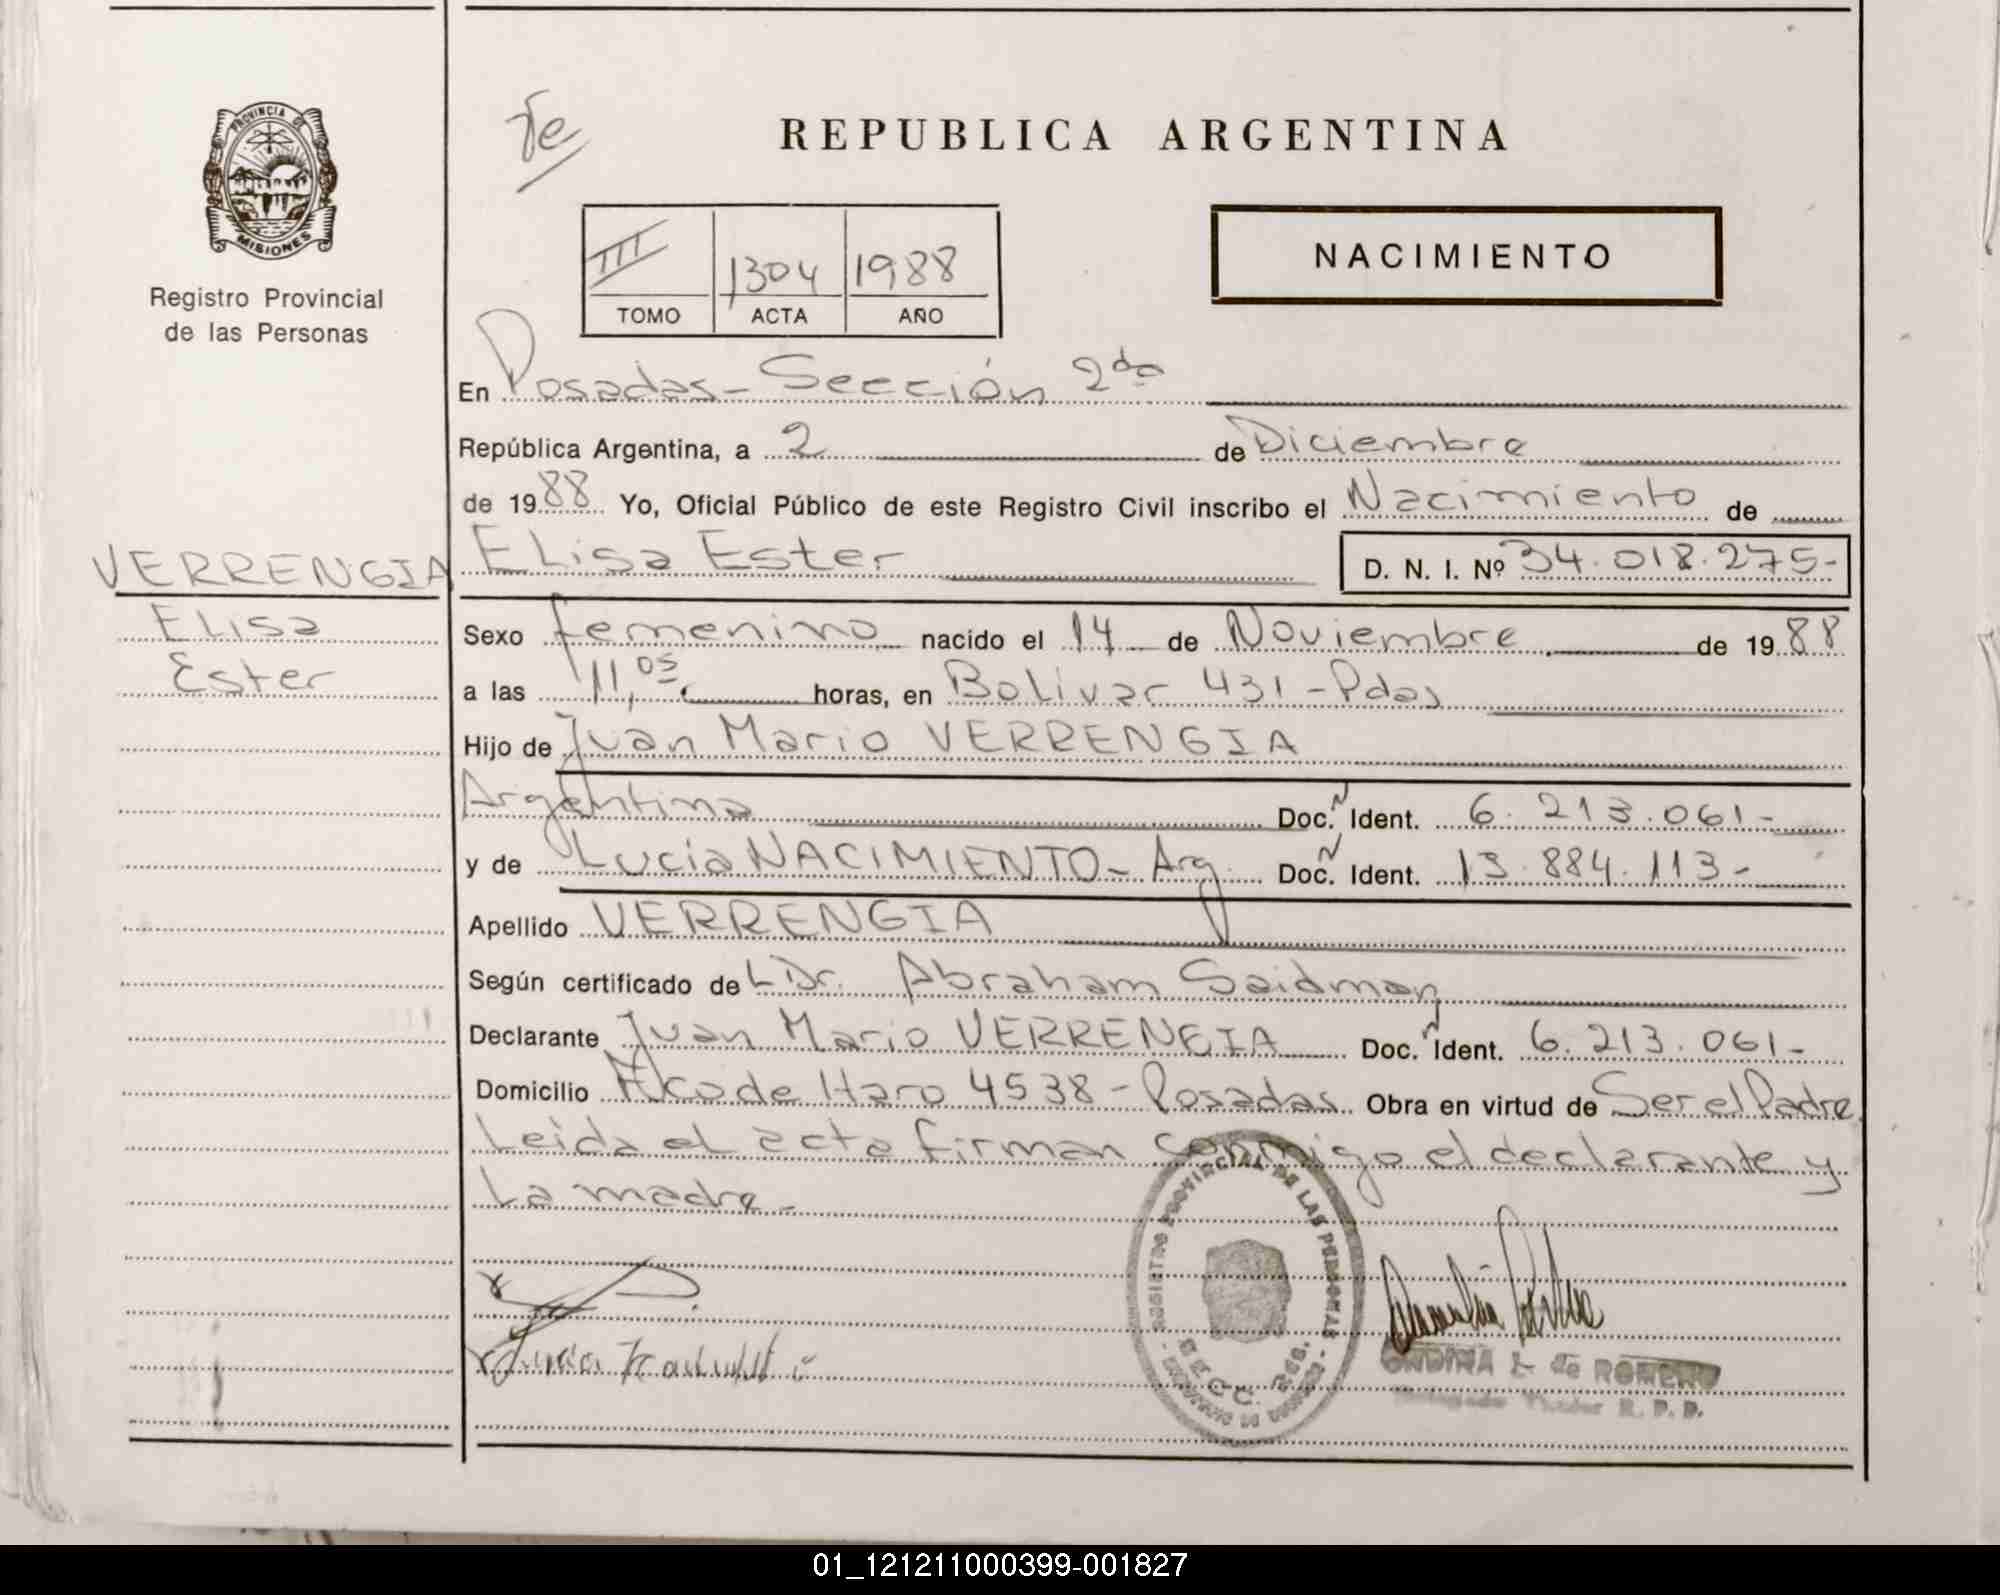 PROVINCIA DE
MISIONES
Registro Provincial
de las Personas
Fe
REPUBLICA ARGENTINA
NACIMIENTO
III 1304 1988
TOMO ACTA AÑO
En Posadas - Sección 2da
República Argentina, a 2 de Diciembre
de 1988 Yo, Oficial Público de este Registro Civil inscribo el Nacimiento de
VERRENGIA
Elisa Ester D. N. I. Nº 34.018.275-
Elisa
Ester
Sexo femenino nacido el 14 de Noviembre de 1988
a las 11,05 horas, en Bolivar 431 - Pdas
Hijo de Juan Mario VERRENGIA
Argentina Doc. Ident. 6.213.061-
y de Lucia NACIMIENTO - Arg. Doc. Ident. 13.884.113-
Apellido VERRENGIA
Según certificado de L Dr. Abraham Saidman
Declarante Juan Mario VERRENGIA Doc. Ident. 6.213.061-
Domicilio de Haro 4538 - Posadas Obra en virtud de Ser el Padre.
Leida el acta firman conmigo el declarante y
La madre -
REGISTRO PROVINCIAL DE LAS PERSONAS
SECC.
ONDINA de ROMERO
R. P. P.
01_121211000399-001827